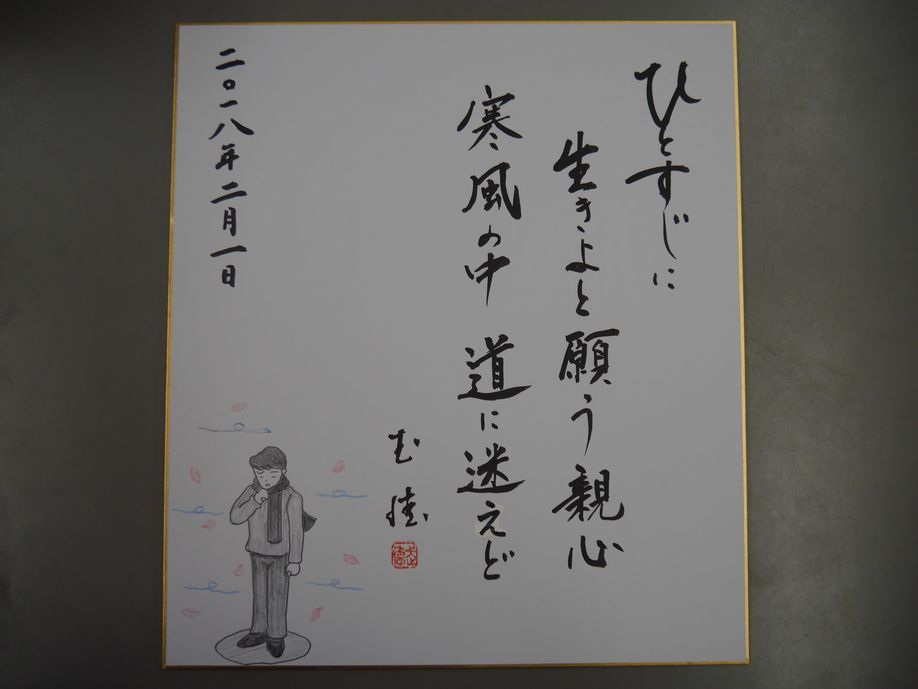 ひとすじに
生きよと願う親心
寒風の中 道に迷えど
二〇一八年二月一日